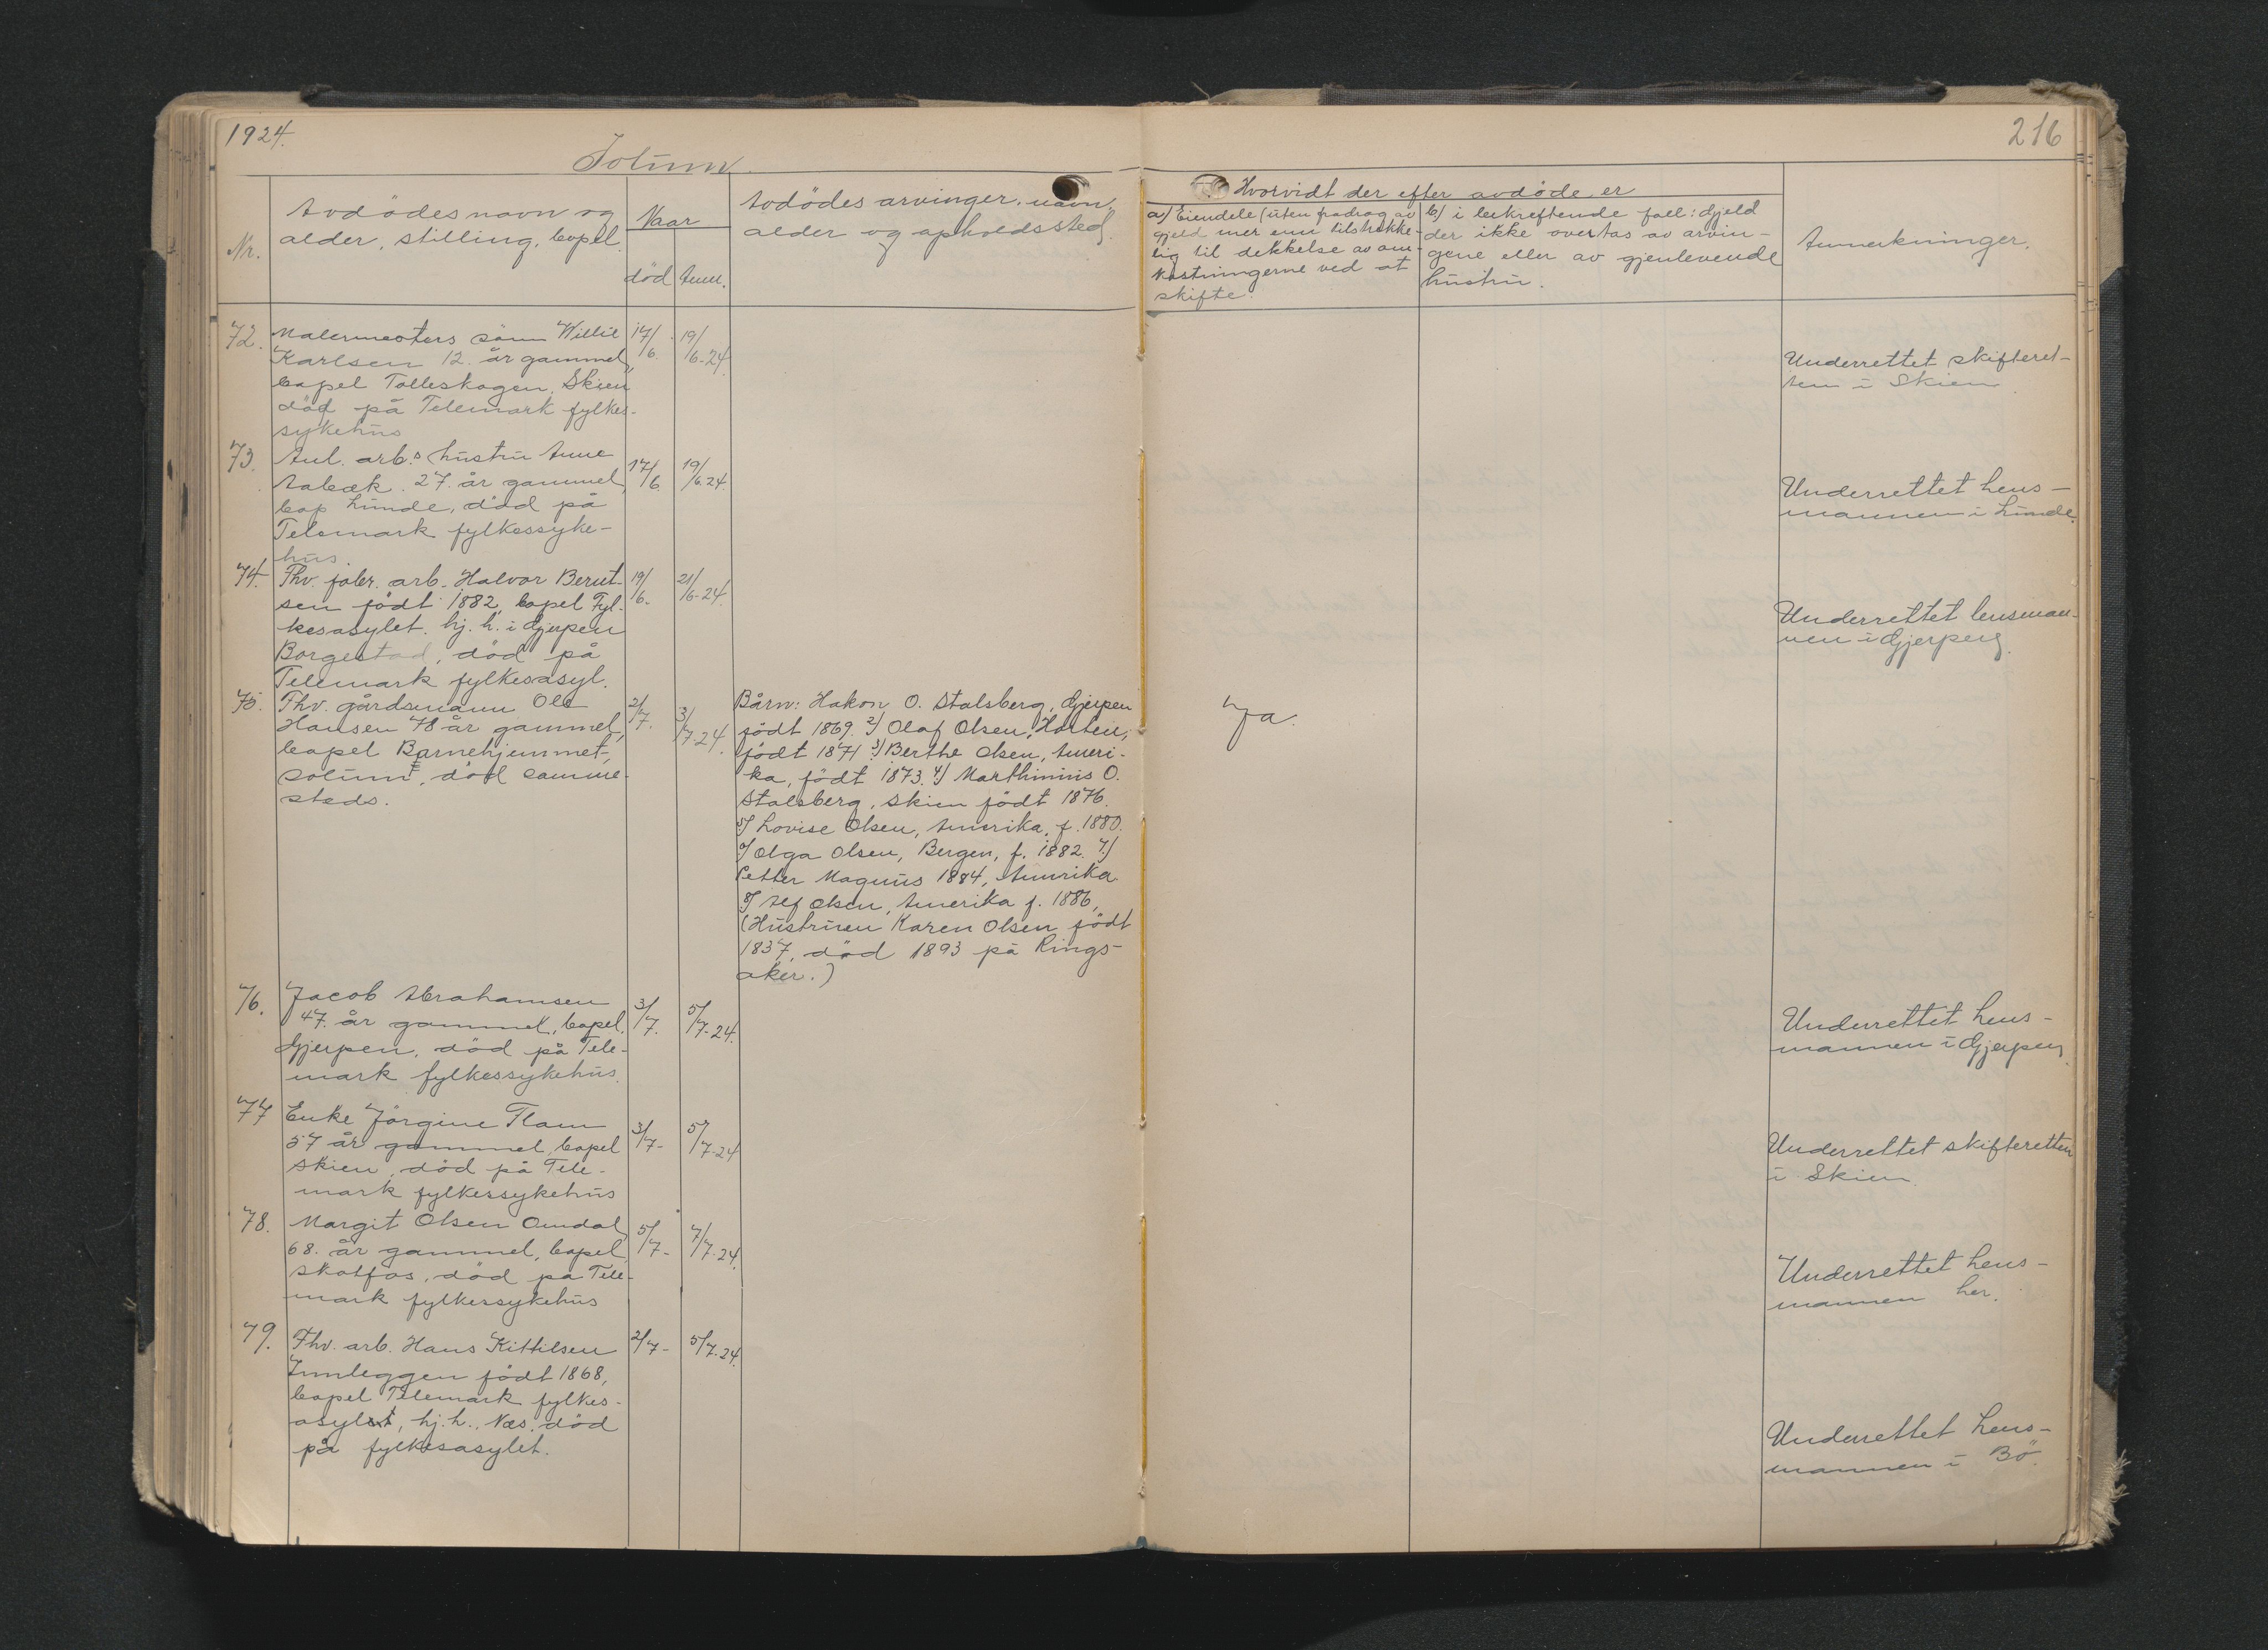 1924.
216
Solum.
Nr.
Avdödes navn og
alder, stilling, bopel.
Naar
död
Anm.
Avdödes arvinger, navn,
alder og opholdssted.
Hvorvidt der efter avdöde er
a) Eiendele (uten fradrag av
gjeld mer enn tilstrekke-
lig til dekkelse av om-
kostningerne ved at
skifte.
b) i bekreftende fall: Gjeld
der ikke overtas av arvin-
gene eller av gjenlevende
hustru.
Anmerkninger.
72.
Malermesters sönn Willie
Karlsen 12 år gammel,
bopel Tolleskogen, Skien
död på Telemark fylkes-
sykehus
17/6.
19/6-24.
Underrettet skifteret-
ten i Skien.
73.
Anl. arb.s hustru Anne
Aabæk. 27. år gammel,
bop Lunde, död på
Telemark fylkessyke-
hus.
17/6.
19/6.24.
Underrettet Lens-
mannen i Lunde.
74.
Fhv. fabr. arb. Halvor Bernt-
sen födt 1882, bopel Fyl-
kesasylet. hj. h. i Gjerpen
Borgestad, död på
Telemark fylkesasyl.
19/6-
21/6-24.
Underrettet lensman-
nen i Gjerpen.
75.
Fhv. gårdsmann Ole
Hansen 78 år gammel,
bopel Barnehjemmet,
Solum, död samme-
steds.
2/7.
3/7.24.
Bårn: Hakon O. Stalsberg, Gjerpen
födt 1869. 2) Olaf Olsen, Horten,
födt 1871 3) Berthe Olsen, Ameri-
ka, födt 1873. 4) Marthinius O.
Stalsberg, Skien födt 1876.
5) Lovise Olsen, Amerika, f. 1880.
6) Olga Olsen, Bergen, f. 1882. 7.)
Petter Magnus 1884, Amerika
8) Alf Olsen, Amerika f. 1886,
(Hustruen Karen Olsen födt
1837, död 1893 på Rings-
aker.)
Ja.
76.
Jacob Abrahamsen
47. år gammel, bopel.
Gjerpen, död på Tele-
mark fylkessykehus.
3/7.
5/7-24.
Underrettet Lens-
mannen i Gjerpen
77
Enke Jörgine Flam
57 år gammel, bopel
Skien, död på Tele-
mark fylkessykehus
3/7-
5/7-24
Underrettet skifteretten
i Skien.
78.
Margit Olsen Omdal,
68. år gammel, bopel
Skotfos, död på Tele-
mark fylkessykehus
5/7-
7/7.24.
Underrettet Lens-
mannen her.
79.
Fhv. arb. Hans Kittilsen
Innleggen födt 1868,
bopel Telemark fylkes-
asylet, hj. h. Næs. död
på fylkesasylet.
2/7-
5/7.24.
Underrettet Lens-
mannen i Bö.